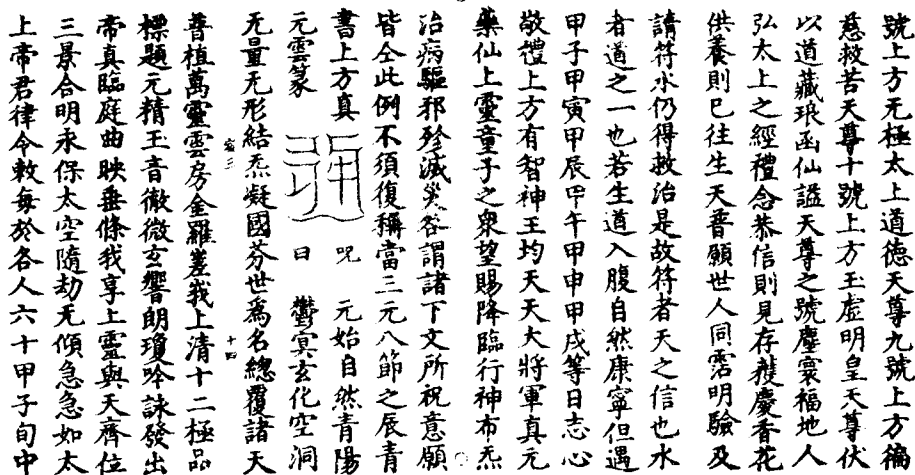 號上方无極太上道德天尊九號上方徧
慈救苦天尊十號上方玉虛明皇天尊伏
以道藏琅函仙謚天尊之號塵寰福地人
弘太上之經禮念恭信則見存獲慶香花
供養則已往生天普願世人同霑明驗及
請符水仍得救治是故符者天之信也水
者道之一也若生道入腹自然康寧但遇
甲子甲寅甲辰甲午甲申甲戌等日志心
敬禮上方有智神王均天天大將軍真元
藥仙上靈童子之衆望賜降臨行神布炁
治病驅邪殄滅災咎謂諸下文所祝意願
皆仝此例不須復稱當三元八節之辰青
書上方真 呪 元始自然青陽
元雲篆 曰 鬱冥玄化空洞
无量无形結炁凝國芬世爲名總覆諸天
十四
普植萬靈雲房金羅嵳峩上清十二極品
標題元精玉音徹微玄響朗瓊吟詠發出
帝真臨庭曲映垂條我享上靈與天齊位
三景合明永保太空隨劫无傾急急如太
上帝君律令敕每於各人六十甲子旬中